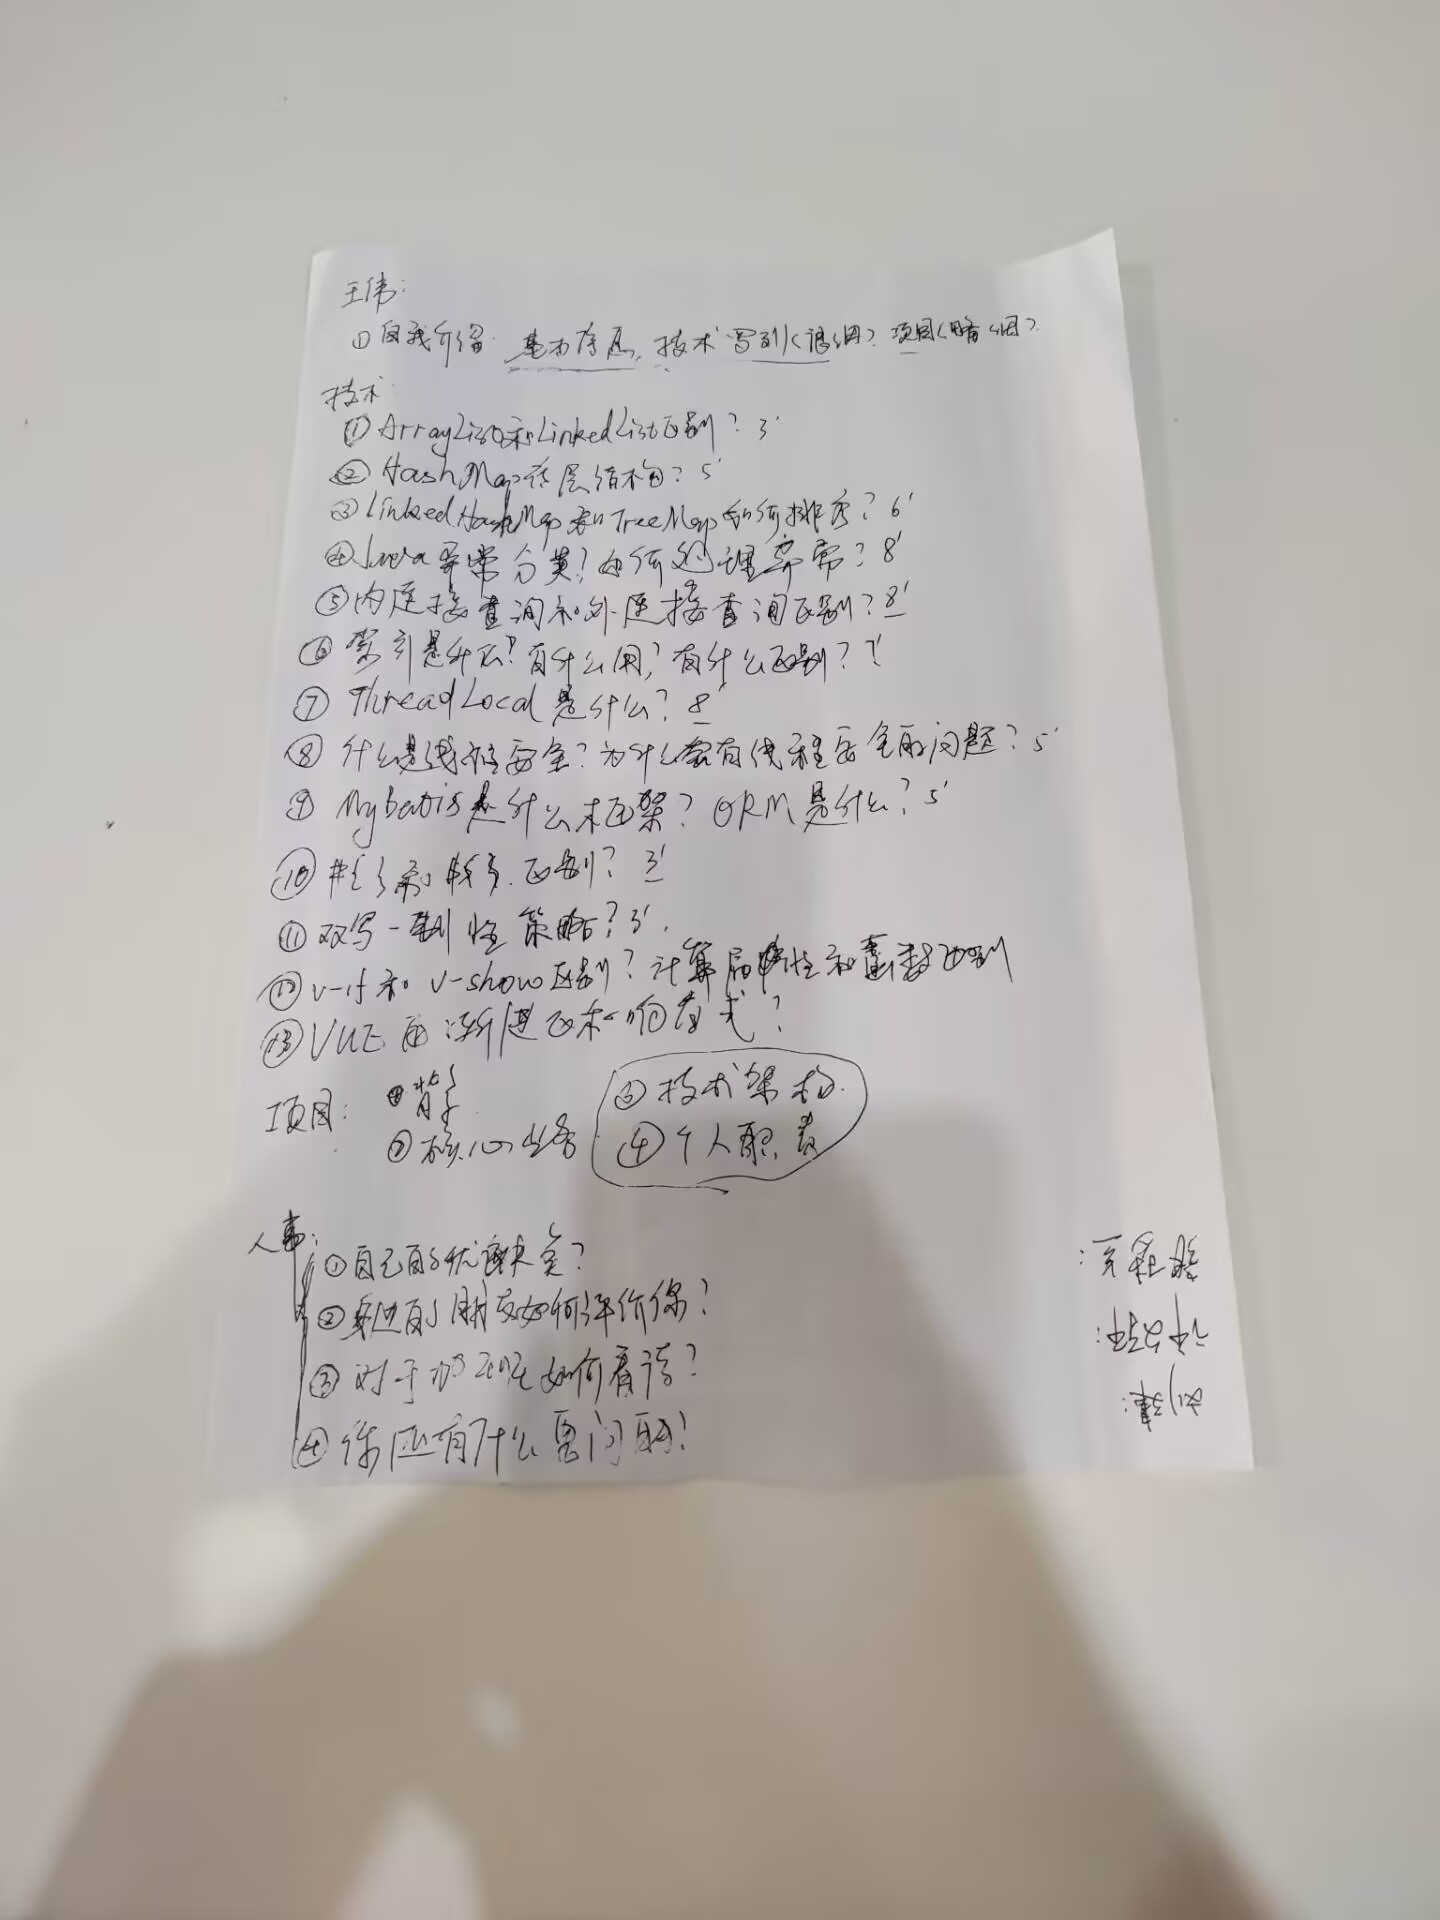 王伟:
①自我介绍. 基本信息, 技术罗列(详细)? 项目(略细)?
技术
①ArrayList和LinkedList区别? 3'
②HashMap底层结构? 5'
③LinkedHashMap和TreeMap如何排序? 6'
④Java异常分类? 如何处理异常? 8'
⑤内连接查询和外连接查询区别? 8'
⑥索引是什么? 有什么用? 有什么区别? 7'
⑦ThreadLocal是什么? 8'
⑧什么是线程安全? 为什么会有线程安全的问题? 5'
⑨Mybatis是什么框架? ORM是什么? 5'
⑩#{}和 区别? 3'
⑪双写一致性策略? 3'.
⑫v-if和v-show区别? 计算属性和 区别
⑬VUE的渐进式和响应式?
项目: ① 背
②核心业务
③技术架构.
④个人职责
人事:
①自己的优 缺点?
②身边的朋友如何评价你?
③对于加班如何看待?
④你还有什么要问的?